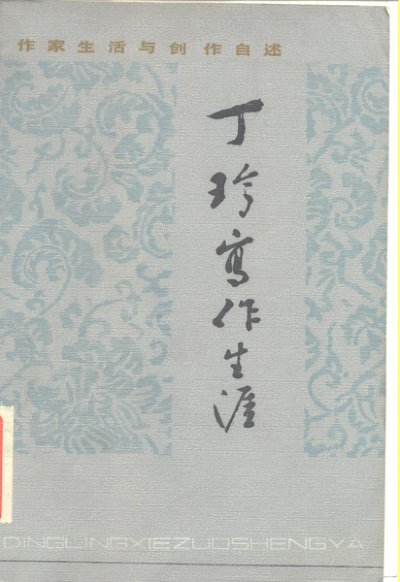 作家生活与创作自述
丁玲寫作生涯
DINGLINGXIEZUOSHENGYA